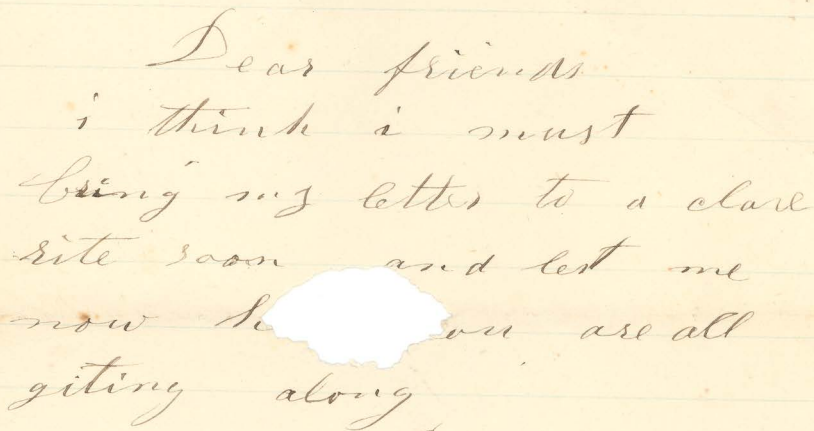 Dear friends
i think i must
bring my letter to a clare
rite soon and lest me
now h ou are all
giting along